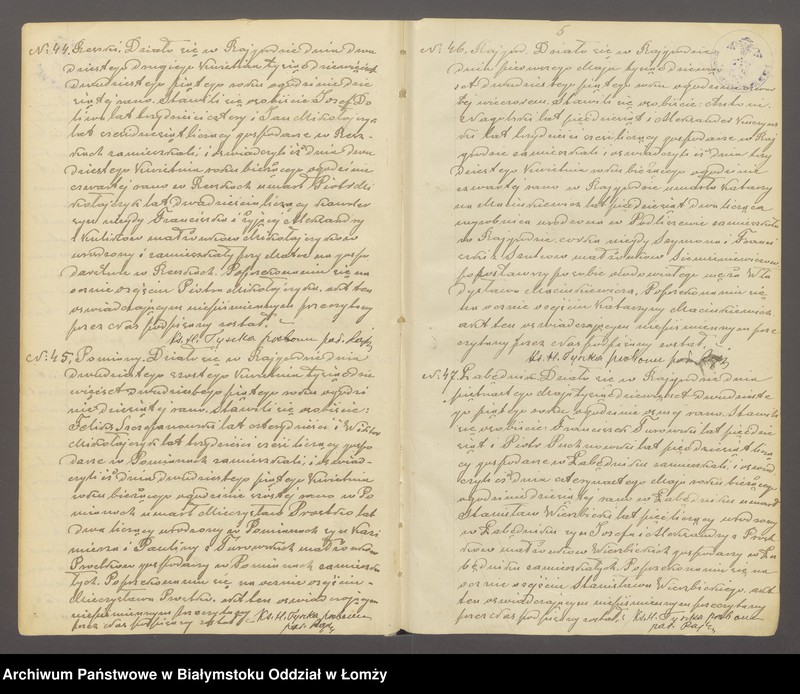 № 44. Reszki. Działo się w Rajgrodzie dnia dwu
dziestego drugiego Kwietnia tysiąc dziewięćset
dwudziestego piątego roku o godzinie dzie
siątej rano. Stawili się osobiście Józef Do
liwa lat trzydzieści cztery i Jan Mikołajczyk
lat czterdzieści liczący gospodarze w Resz-
kach zamieszkali, i oświadczyli iż dnia dwu
dziestego Kwietnia roku bieżącego o godzinie
czwartej rano w Reszkach umarł Piotr Mi
kołajczyk lat dwadzieścia liczący kawaler
syn niegdy Franciszka i żyjącej Aleksandry
z Kulików małżonków Mikołajczyków
urodzony i zamieszkały przy Matce na gospo
darstwie w Reszkach. Po przekonaniu się na
ocznie o zejściu Piotra Mikołajczyka, akt ten
oświadczającym niepiśmiennym przeczytany
przez Nas podpisany został.
Ks. H. Tyszka proboszcz par. Rajg.
№ 45. Pomiany. Działo się w Rajgrodzie dnia
dwudziestego szóstego Kwietnia tysiąc dzie
więćset dwudziestego piątego roku o godzi
nie dziesiątej rano. Stawili się osobiście:
Feliks Szczepanowski lat czterdzieści i Wiktor
Mikołajczyk lat trzydzieści sześć liczący gospo
darze w Pomianach zamieszkali, i oświad-
czyli iż dnia dwudziestego piątego Kwietnia
roku bieżącego o godzinie szóstej rano w Po
mianach umarł Mieczysław Prostko lat
dwa liczący urodzony w Pomianach syn Kazi
mierza i Pauliny z Turowskich małżonków
Prostków gospodarzy w Pomianach zamieszka
łych. Po przekonaniu się naocznie o zejściu
Mieczysława Prostko, akt ten oświadczającym
niepiśmiennym przeczytany
przez Nas podpisany został Ks. H. Tyszka proboszcz
par. Rajg.
5
№ 46. Rajgród. Działo się w Rajgrodzie
dnia pierwszego Maja tysiąc dziewięć
set dwudziestego piątego roku o godzinie
tej wieczorem. Stawili się osobiście: Antoni
lat pięćdziesiąt i Aleksander
ski lat trzydzieści sześć liczący gospodarze w Raj
grodzie zamieszkali i oświadczyli iż dnia trzy
dziestego Kwietnia roku bieżącego o godzinie
czwartej rano w Rajgrodzie umarła Katarzy
na Maciukiewicz lat pięćdziesiąt dwa licząca
wyrobnica urodzona w zamieszkała
w Rajgrodzie córka niegdy Szymona i Franci
szki z małżonków
pozostawiwszy po sobie owdowiałego męża Wła
dysława Maciukiewicza. Po przekonaniu się
naocznie o zejściu Katarzyny Maciukiewicz
akt ten oświadczającym niepiśmiennym prze
czytany przez Nas podpisany został.
Ks. H. Tyszka proboszcz par. Rajg.
№ 47. Łabędnik. Działo się w Rajgrodzie dnia
piętnastego Maja tysiąc dziewięćset dwudzieste
go piątego roku o godzinie ósmej rano. Stawili
się osobiście: Franciszek Turowski lat pięćdzie
siąt i Piotr lat pięćdziesiąt liczą
cy gospodarze w Łabędniku zamieszkali, i oświad
czyli iż dnia czternastego Maja roku bieżącego
o godzinie dziesiątej rano w Łabędniku umarł
Stanisław Wierzbicki lat pięć liczący urodzony
w Łabędniku syn Józefa i Aleksandry z Prost
ków małżonków Wierzbickich gospodarzy w Ła
będniku zamieszkałych. Po przekonaniu się na
ocznie o zejściu Stanisława Wierzbickiego, akt
ten oświadczającym niepiśmiennym przeczytany
przez Nas podpisany został. Ks. H. Tyszka proboszcz
par. Rajg.
Archiwum Państwowe w Białymstoku Oddział w Łomży